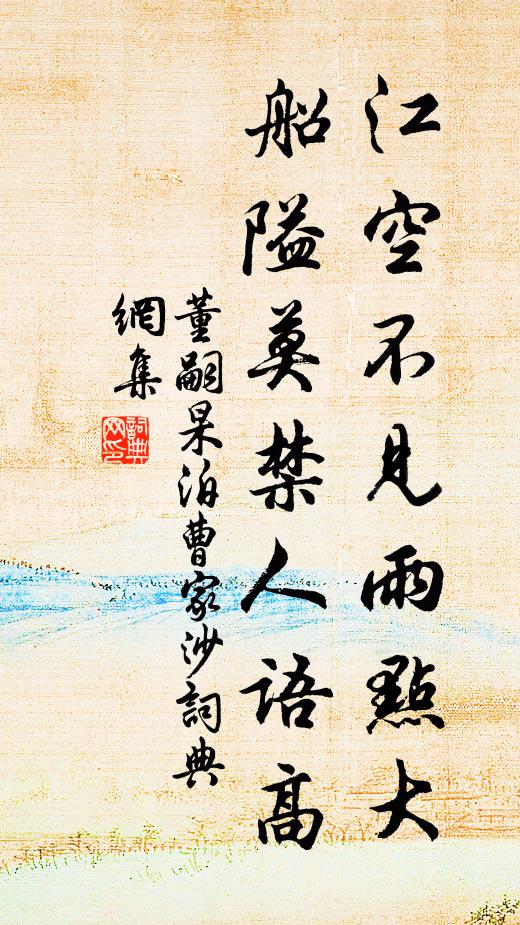 江空不見雨點大
船隘莫禁人語高
董嗣杲泊曹家沙詞典
網集
詞典網印